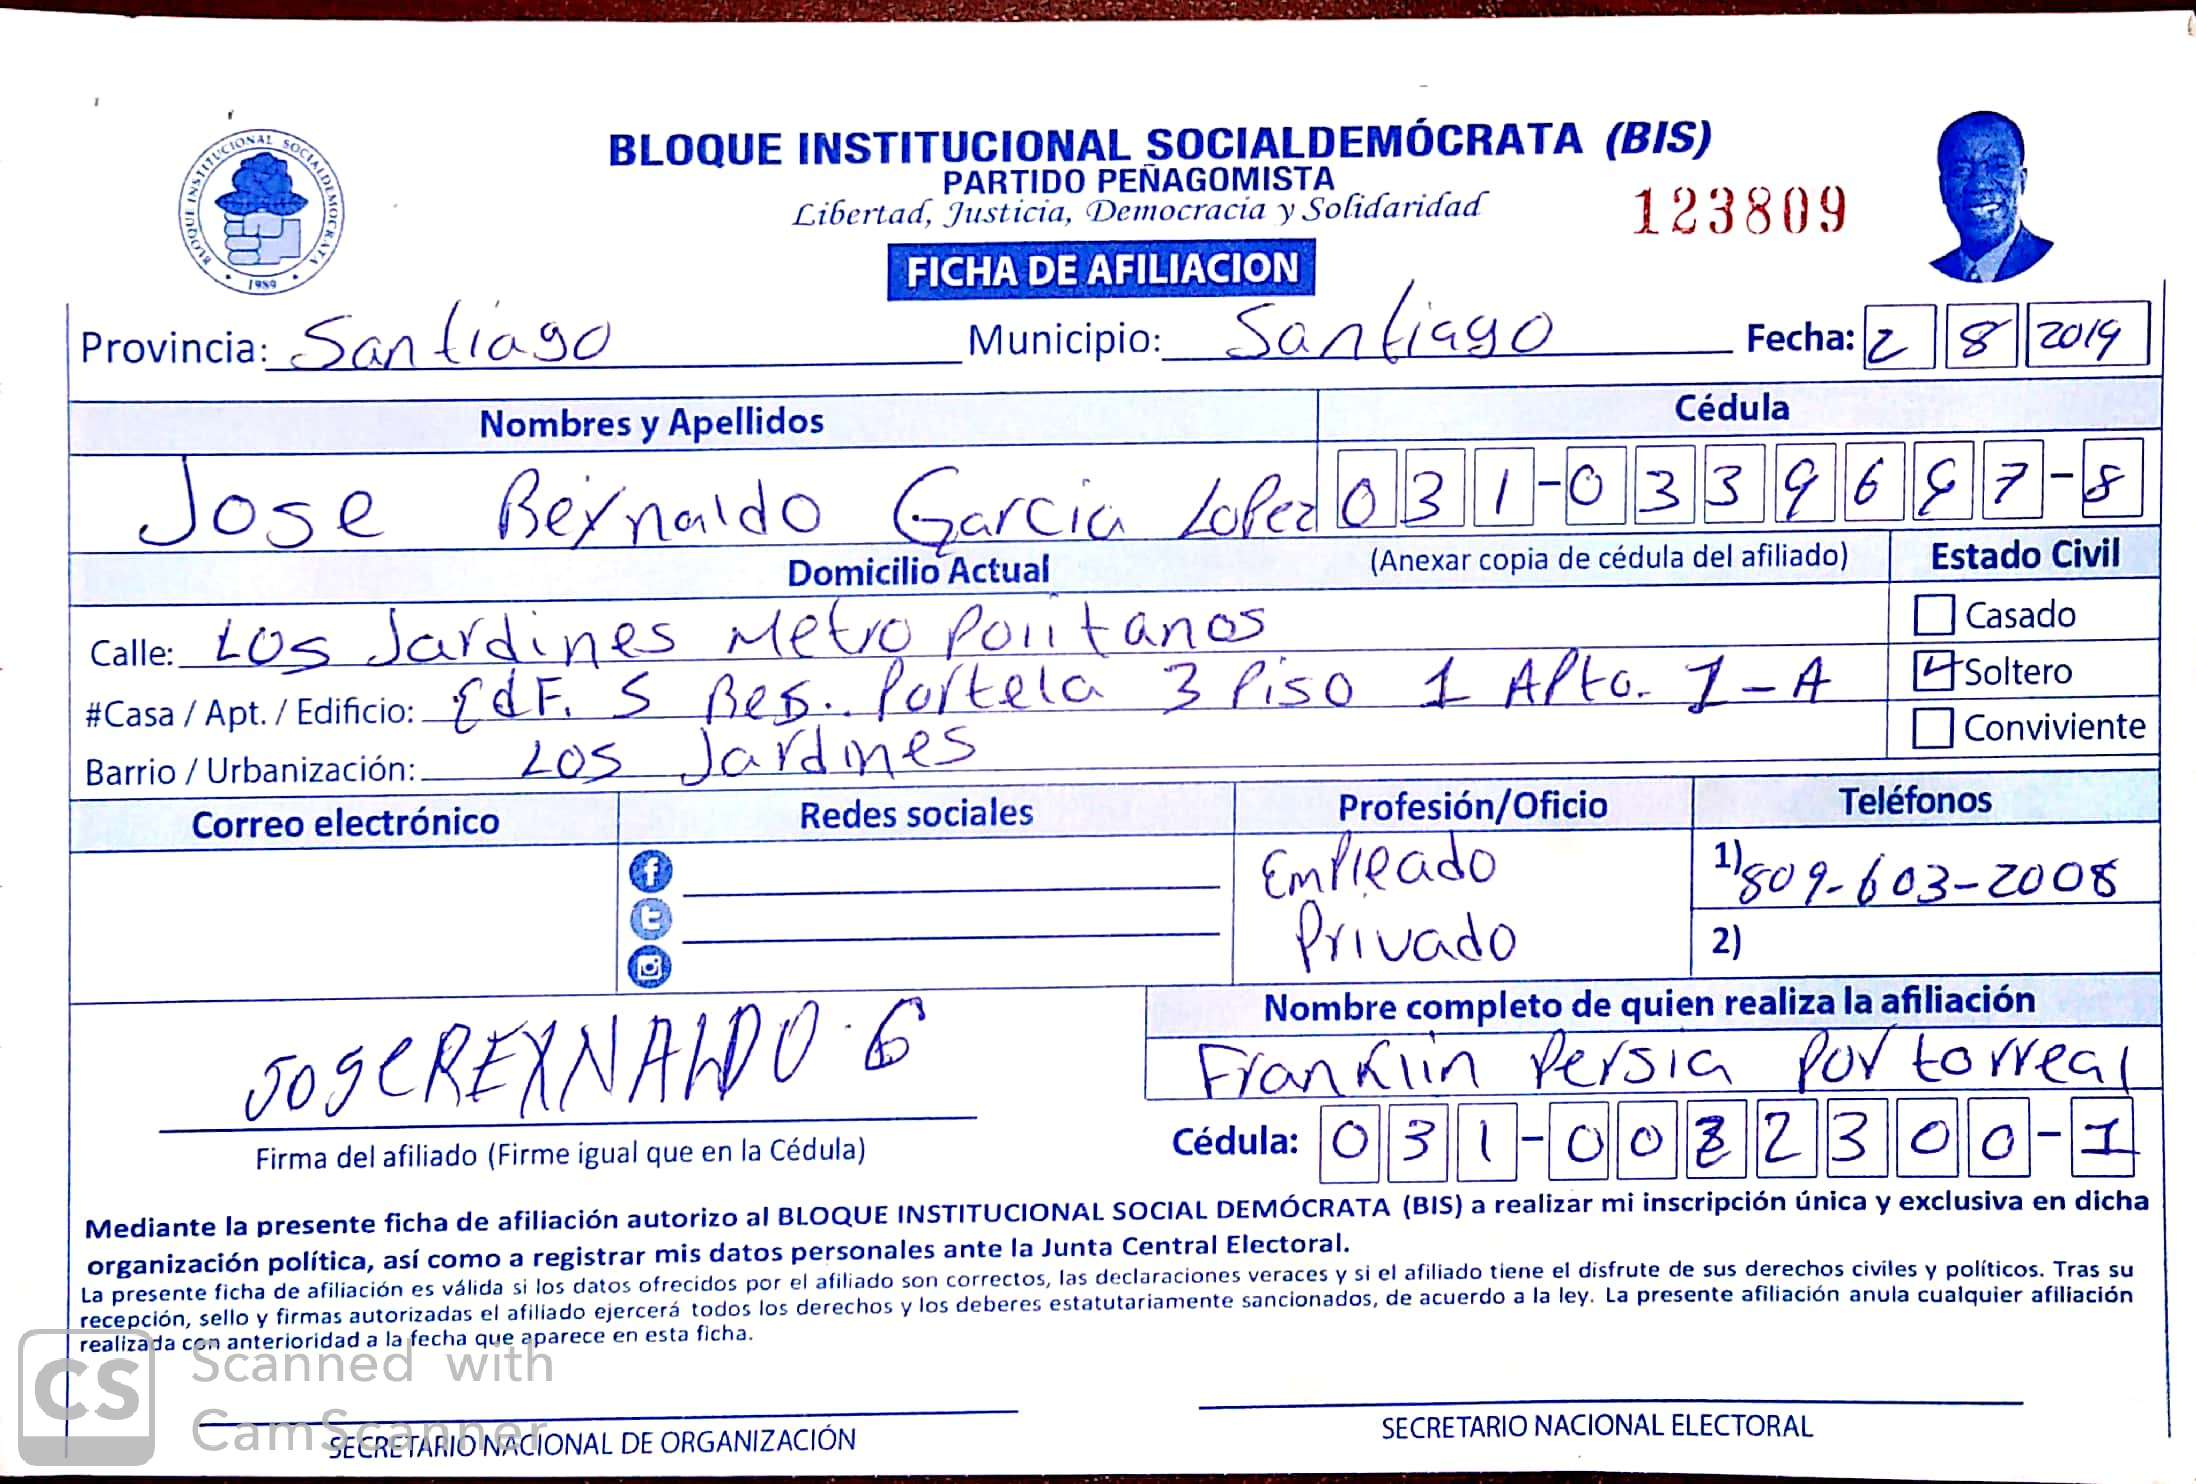 BLOQUE INSTITUCIONAL SOCIALDEMÓCRATA (BIS)
PARTIDO PEÑAGOMISTA
Libertad, Justicia, Democracia y Solidaridad
123809
BLOQUE INSTITUCIONAL SOCIALDEMOCRATA
1989
FICHA DE AFILIACION
Provincia: Santiago Municipio: Santiago Fecha: 2 8 2019
Nombres y Apellidos Cédula
Jose Reynaldo Garcia Lopez 031-0339697-8
Domicilio Actual (Anexar copia de cédula del afiliado) Estado Civil
Calle: Los Jardines Metropolitanos Casado
#Casa / Apt. / Edificio: Edf. 5 Res. Portela 3 Piso 1 Apto. 1-A Soltero
Barrio / Urbanización: Los Jardines Conviviente
Correo electrónico Redes sociales Profesión/Oficio Teléfonos
Empleado 1) 809-603-2008
Privado 2)
Nombre completo de quien realiza la afiliación
JoseREYNALDO.G Franklin Persia Portorreal
Firma del afiliado (Firme igual que en la Cédula) Cédula: 031-0022300-1
Mediante la presente ficha de afiliación autorizo al BLOQUE INSTITUCIONAL SOCIAL DEMÓCRATA (BIS) a realizar mi inscripción única y exclusiva en dicha
organización política, así como a registrar mis datos personales ante la Junta Central Electoral.
La presente ficha de afiliación es válida si los datos ofrecidos por el afiliado son correctos, las declaraciones veraces y si el afiliado tiene el disfrute de sus derechos civiles y políticos. Tras su
recepción, sello y firmas autorizadas el afiliado ejercerá todos los derechos y los deberes estatutariamente sancionados, de acuerdo a la ley. La presente afiliación anula cualquier afiliación
realizada con anterioridad a la fecha que aparece en esta ficha.
CS Scanned with
CamScanner
SECRETARIO NACIONAL DE ORGANIZACIÓN SECRETARIO NACIONAL ELECTORAL